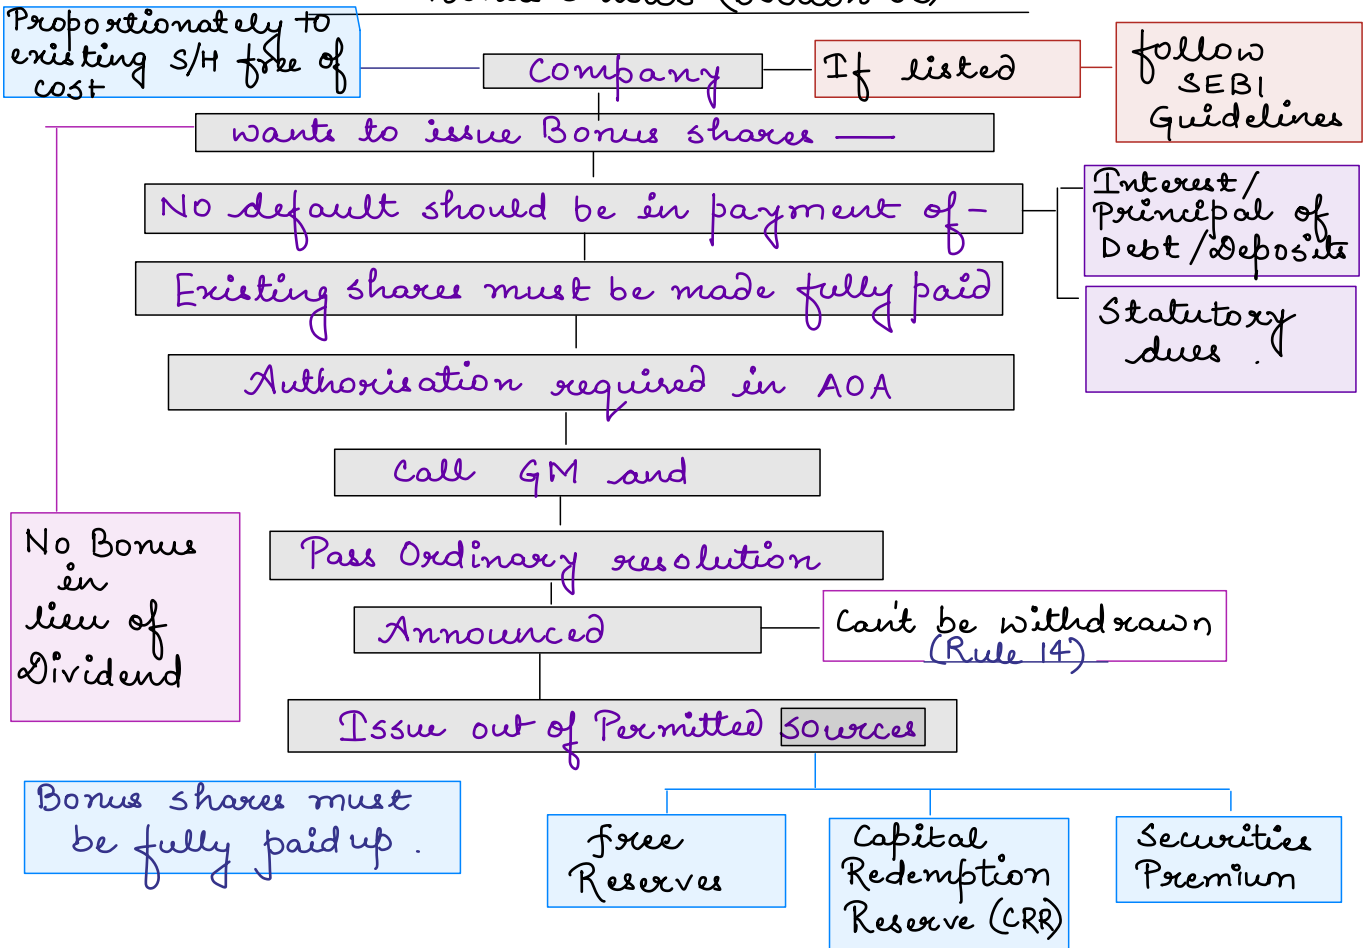 Bonus Shares (Section 63)
Proportionately to
existing S/H free of
cost
Company
If listed
follow
SEBI
Guidelines
wants to issue Bonus shares —
No default should be in payment of -
Interest/
Principal of
Debt/Deposits
Statutory
dues.
Existing shares must be made fully paid
Authorisation required in AOA
Call GM and
Pass Ordinary resolution
No Bonus
in
lieu of
Dividend
Announced
Can't be withdrawn
(Rule 14)
Issue out of Permitted sources
Bonus shares must
be fully paid up.
free
Reserves
Capital
Redemption
Reserve (CRR)
Securities
Premium